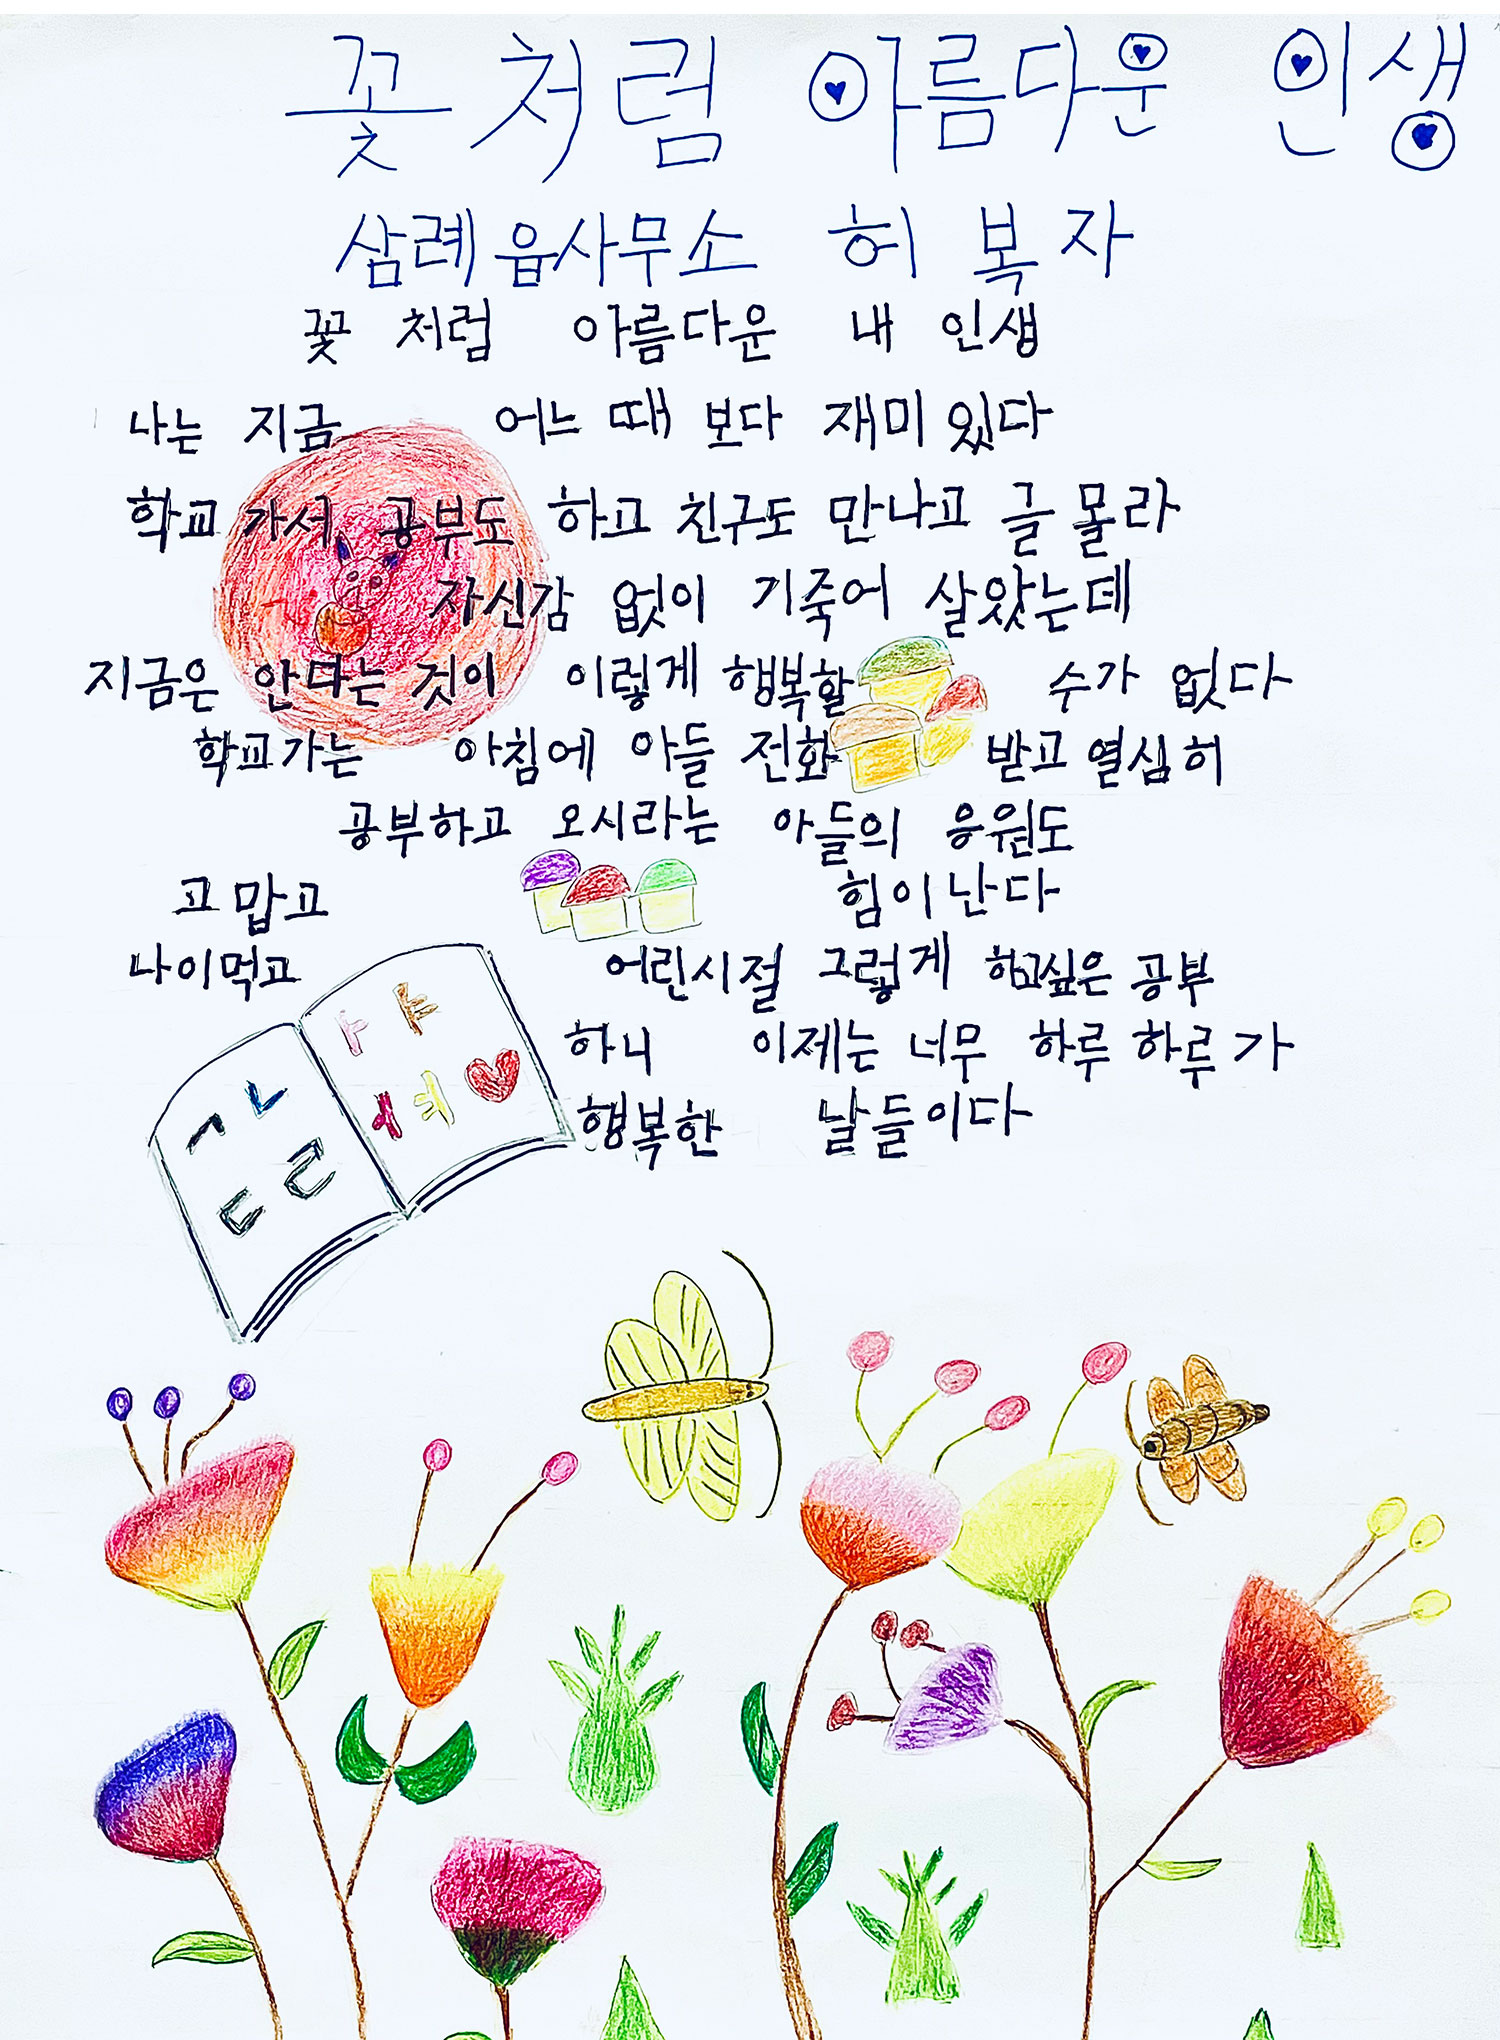 꽃처럼 아름다운 인생
삼례읍사무소 허복자
꽃 처럼 아름다운 내 인생
나는 지금 어느 때 보다 재미있다
학교 가서 공부도 하고 친구도 만나고 글 몰라
자신감 없이 기죽어 살았는데
지금은 안다는 것이 이렇게 행복할 수가 없다
학교가는 아침에 아들 전화 받고 열심히
공부하고 오시라는 아들의 응원도
고맙고 힘이난다
나이먹고 어린시절 그렇게 하고싶은 공부
하니 이제는 너무 하루 하루가
행복한 날들이다
ㄱ ㄴ ㅏ ㅑ
ㄷ ㄹ ㅓ ㅕ